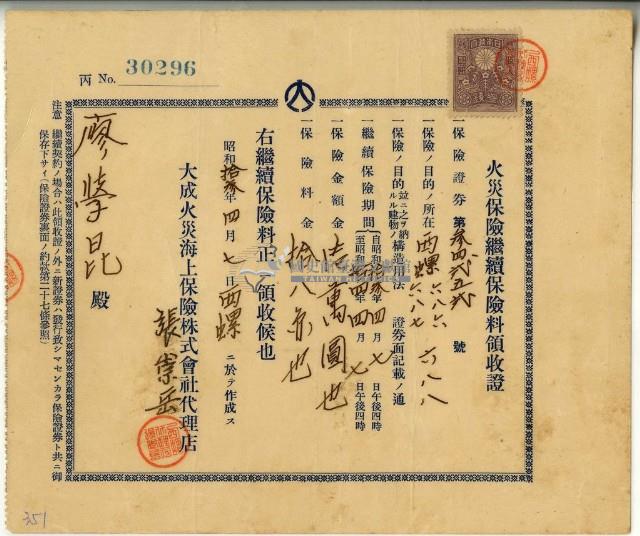 丙 No. 30296
火災保險繼續保險料領收證
一保險證券 第參四貳五貳 號
一保險ノ目的ノ所在 西螺 六八六 六八七 六八八
一保險ノ目的竝ニ之ヲ納ルル建物ノ構造用法 證券面記載ノ通
一繼續保險期間 自昭和拾參年四月七日午後四時 至昭和拾四年四月七日午後四時
一保險金額金 壱萬圓也
一保險料金 拾八末也
右繼續保險料正ニ領收候也
昭和拾參年四月七日 西螺 ニ於テ作成ス
大成火災海上保險株式會社代理店
張崇岳
廖學昆 殿
注意 繼續契約ノ場合ハ此領收證ノ外ニ新證券ハ發行致シマセンカラ保險證券ト共ニ御
保存下サイ(保險證券裏面ノ約款第二十七條參照)
351